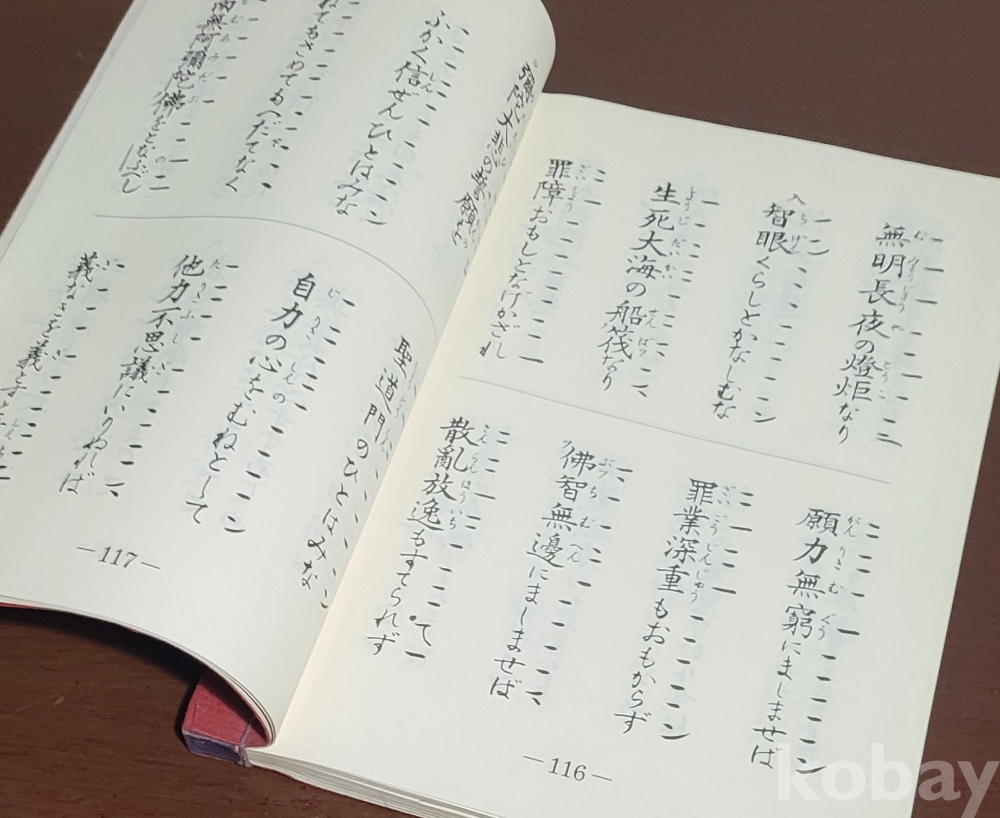 無明長夜の燈炬なり
智眼くらしとかなしむな
生死大海の船筏なり
罪障おもしとなげかざれ
願力無窮にましませば
罪業深重もおもからず
佛智無邊にましませば
散亂放逸もすてられず
—116—
彌陀大悲の誓願を
ふかく信ぜんひとはみな
ねてもさめてもへだてなく
南無阿彌陀佛をとなふべし
聖道門のひとはみな
自力の心をむねとして
他力不思議にいりぬれば
義なきを義とすと
—117—
kobay